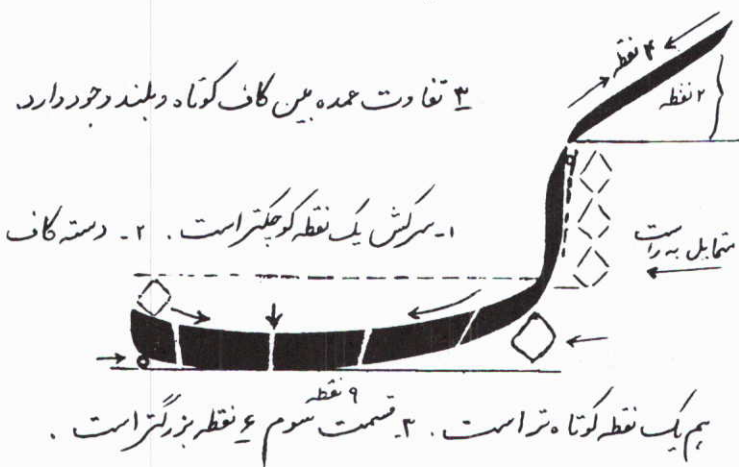 ۴ نقطه
۲ نقطه
۳ تفاوت عمده بین کاف کوتاه و بلند وجود دارد.
۱- سرکش یک نقطه کوچکتر است. ۲- دسته کاف
متمایل به راست
۹ نقطه
هم یک نقطه کوتاه تر است. ۳- قسمت سوم ۶ نقطه بزرگتر است.